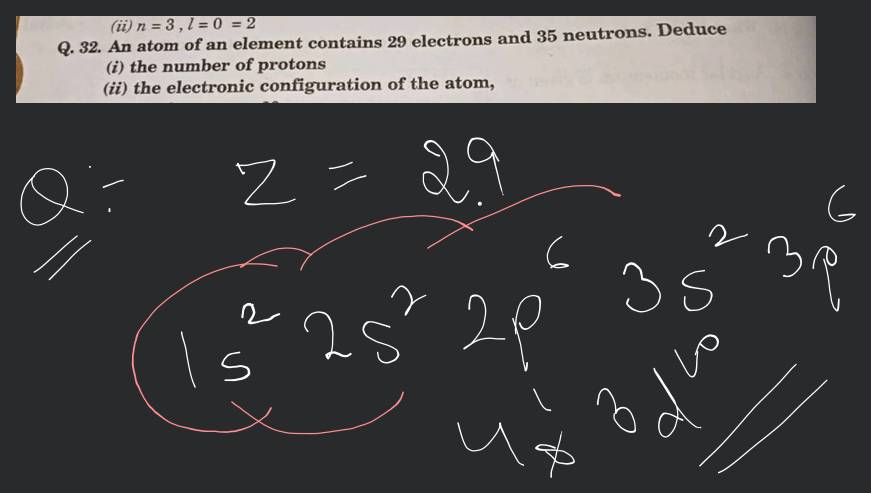 (ii) n = 3 , l = 0 = 2
Q. 32. An atom of an element contains 29 electrons and 35 neutrons. Deduce
(i) the number of protons
(ii) the electronic configuration of the atom,
Q:- Z = 29
1s² 2s² 2p⁶ 3s² 3p⁶
4s¹ 3d¹⁰